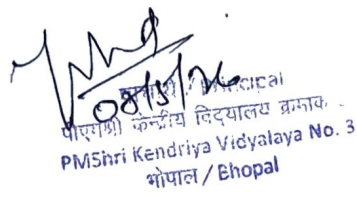 प्राचार्य / Principal
08/5/26
पीएमश्री केन्द्रीय विद्यालय क्रमांक -
PMShri Kendriya Vidyalaya No. 3
भोपाल / Bhopal